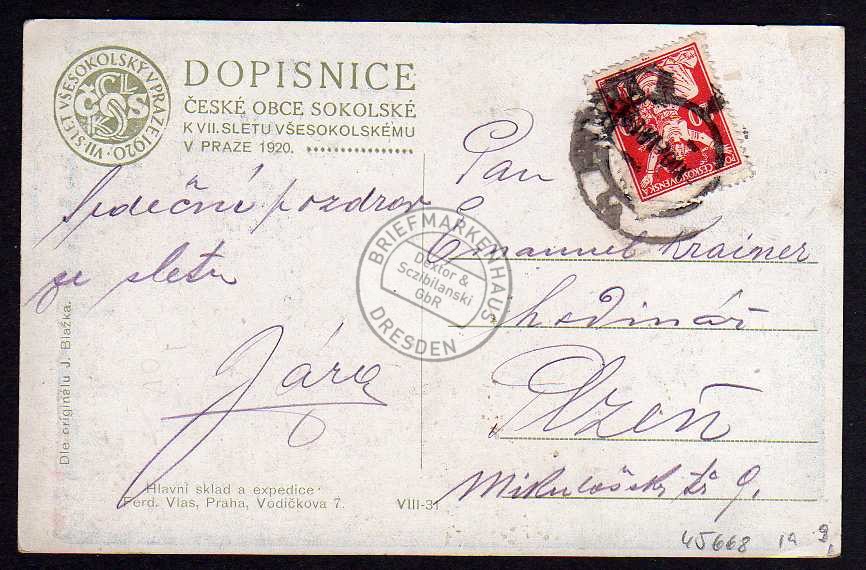 VII. SLET VŠESOKOLSKÝ V PRAZE 1920.
DOPISNICE
ČESKÉ OBCE SOKOLSKÉ
K VII. SLETU VŠESOKOLSKÉMU
V PRAZE 1920.
Srdečný pozdrav
ze sletu
Jára
Dle originálu J. Blažka.
Hlavní sklad a expedice:
Ferd. Vlas, Praha, Vodičkova 7.
VIII-31
ČESKOSLOVENSKÁ
Pan
Emanuel Krainer
hodinář
Plzeň
Mikulášská tř 9.
BRIEFMARKENHAUS
Dextor &
Sczibilanski
GbR
DRESDEN
45668